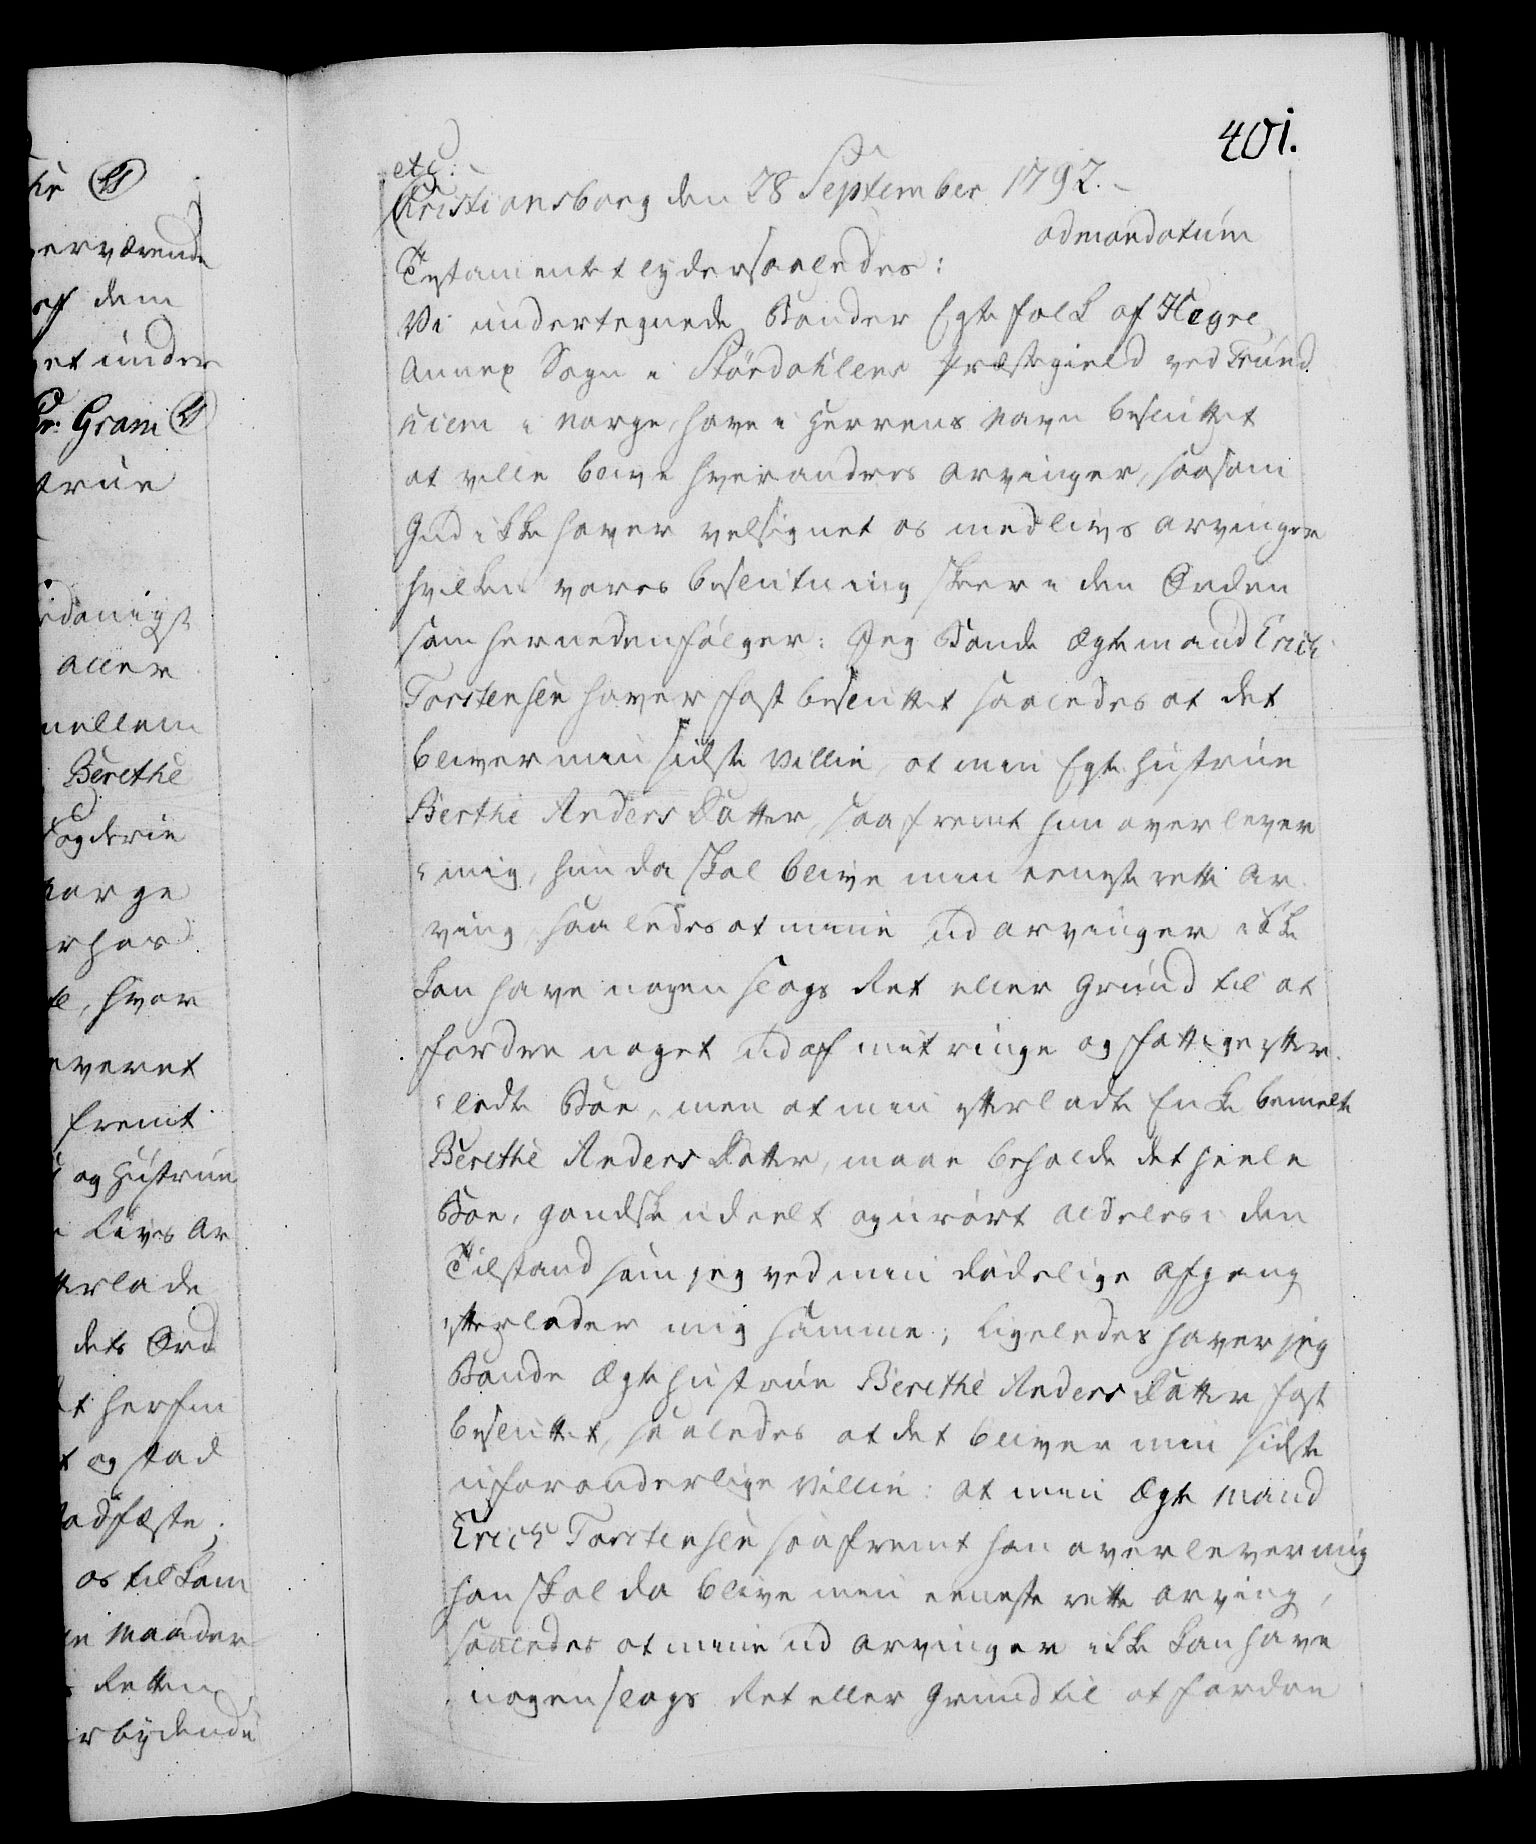 401.
etc:
Christiansborg den 28 September 1792.-
ad mandatum
Testamentet lyder saaledes:
Vi undertegnede Bonder Egte folk af Hegre
Annex Sogn i Stördahlens Præstegield ved Trund
hiem i Norge, have i Herrens Navn besluttet
at ville blive hverandres Arvinger, saasom
Gud ikke haver velsignet os med Livs Arvinger
hvilken vores beslutning skeer i den Orden
som her nedenfölger: Jeg Bonde Ægte mand Erich
Torstensen haver fast besluttet saaledes at det
bliver min sidste Villie, at min Egte Hustrue
Berthe Anders Datter, saafremt hun overlever
mig, hun da skal blive min eneste rette Ar
ving, saaledes at mine ud arvinger ikke
kan have nogen slags Ret eller Grund til at
fordre noget ud af mit ringe og fattige efter
ladte Boe, men at min efterladte Enke bemelte
Berethe Anders Datter, maae beholde det heele
Boe, gandske udeelt og urört aldeles i den
Tilstand som jeg ved min dödelige Afgang
efterlader mig samme; Ligeledes haver jeg
Bonde Ægte Hustrue Berethe Anders Datter fast
besluttet, saaledes at det bliver min sidste
uforanderlige Villie: at min Ægte Mand
Erich Torstensen saafremt han overlever mig
han skal da blive min eeneste rette Arving,
saaledes at mine ud Arvinger ikke kan have
nogen slags Ret eller Grund til at fordre